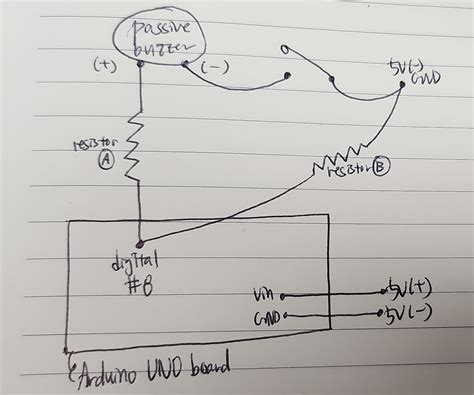 passive
buzzer
(+)
(-)
5V(-)
GND
resistor
A
resistor B
digital
#8
Vin
5V(+)
GND
5V(-)
Arduino UNO board